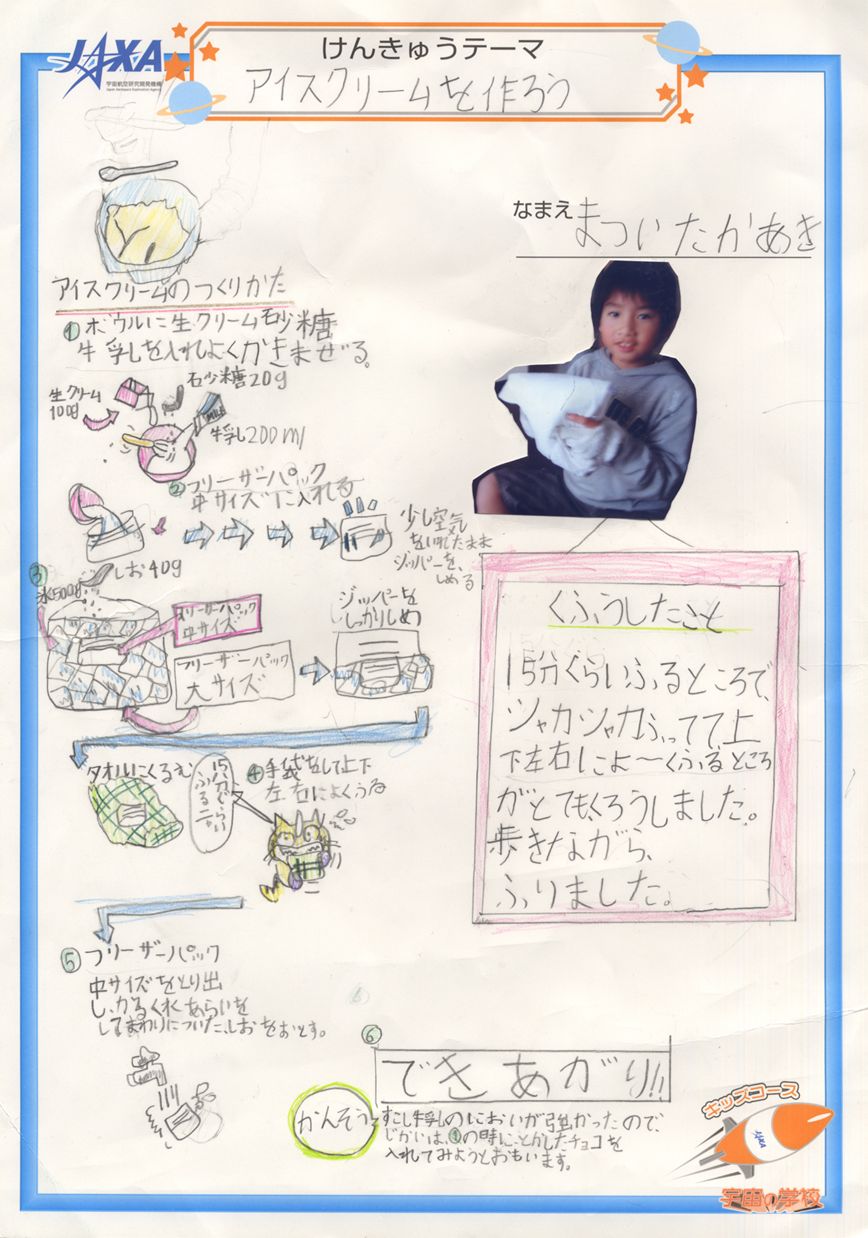 JAXA
宇宙航空研究開発機構
Japan Aerospace Exploration Agency
けんきゅうテーマ
アイスクリームを作ろう
なまえ まついたかあき
アイスクリームのつくりかた
1 ボウルに生クリーム砂糖
牛乳を入れよくかきまぜる。
砂糖20g
生クリーム
100g
牛乳200ml
2 フリーザーパック
中サイズに入れる
少し空気
を入れたまま
ジッパーを、
しめる
3
しお40g
氷500g
フリーザーパック
中サイズ
フリーザーパック
大サイズ
ジッパーを
しっかりしめ
タオルにくるむ
15分ぐらい
ふるニャ
4 手袋をして上下
左右によくふる
5 フリーザーパック
中サイズをとり出
し、かるく水あらいを
してまわりについた、しおをおとす。
6
できあがり!!
かんそう
すこし牛乳のにおいが強かったので
じかいは、1の時にとかしたチョコを
入れてみようとおもいます。
くふうしたこと
15分ぐらいふるところで、
シャカシャカふってて上
下左右によ〜くふるところ
がとてもくろうしました。
歩きながら、
ふりました。
キッズコース
JAXA
宇宙の学校